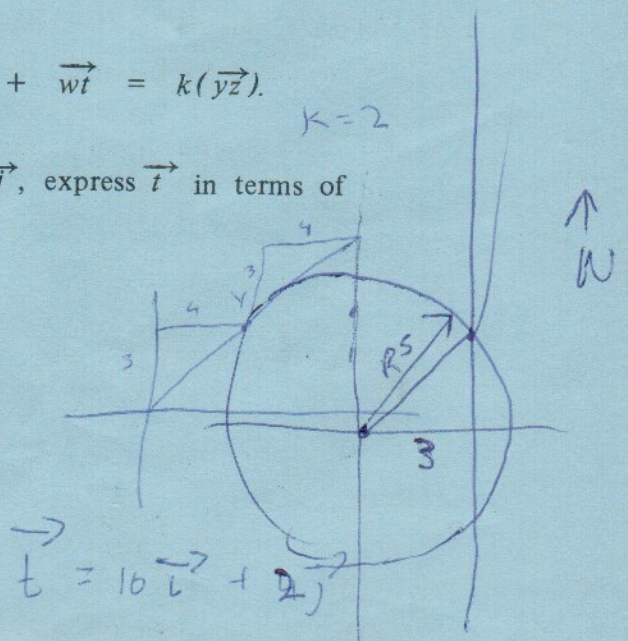 + wt⃗ = k(yz⃗).
K=2
, express t⃗ in terms of
4
3
N
4
Y
3
R 5
3
t⃗ = 10 i⃗ + 2j⃗